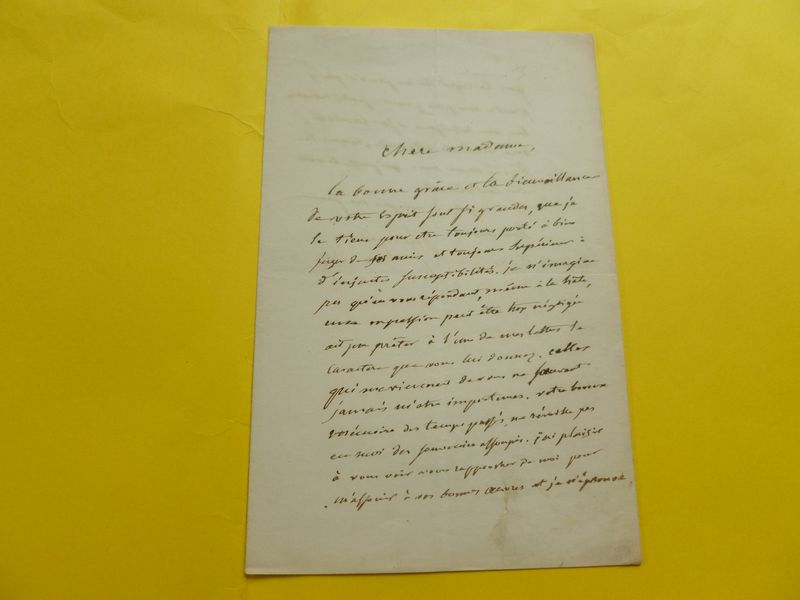 chere madame,
la bonne grâce et la bienveillance
de votre esprit sont si grandes, que je
le tiens pour être toujours porté à bien
juger de ses amis et toujours supérieur à
d'injustes susceptibilités. je n'imagine
pas qu'en vous répondant, même à la hâte,
une expression peut être trop négligée
ait pu prêter à l'une de mes lettres le
caractère que vous lui donnez. celles
qui me viennent de vous ne sauraient
jamais m'être importunes. votre bonne
mémoire des temps passés, ne réveille pas
en moi des souvenirs assoupis. j'ai plaisir
à vous voir vous rapprocher de moi pour
m'associer à vos bonnes œuvres et je n'éprouve